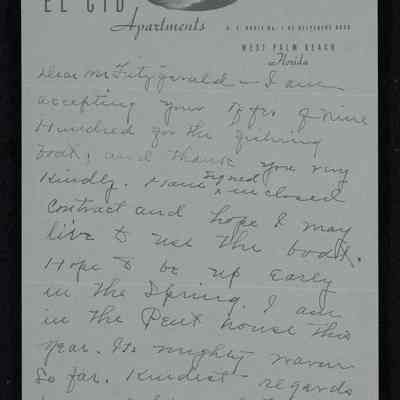 EL CID
Apartments
U. S. ROUTE No. 1 AT BELVEDERE ROAD
WEST PALM BEACH
Florida
Dear Mr Fitzgerald - I am
accepting your offer of nine
Hundred for the fishing
boat, and thank you very
Kindly. Have signed inclosed
contract and hope I may
live to use the boat.
Hope to be up early
in the Spring. I am
in the Pent house this
year. Its mighty warm
So far. Kindest regards